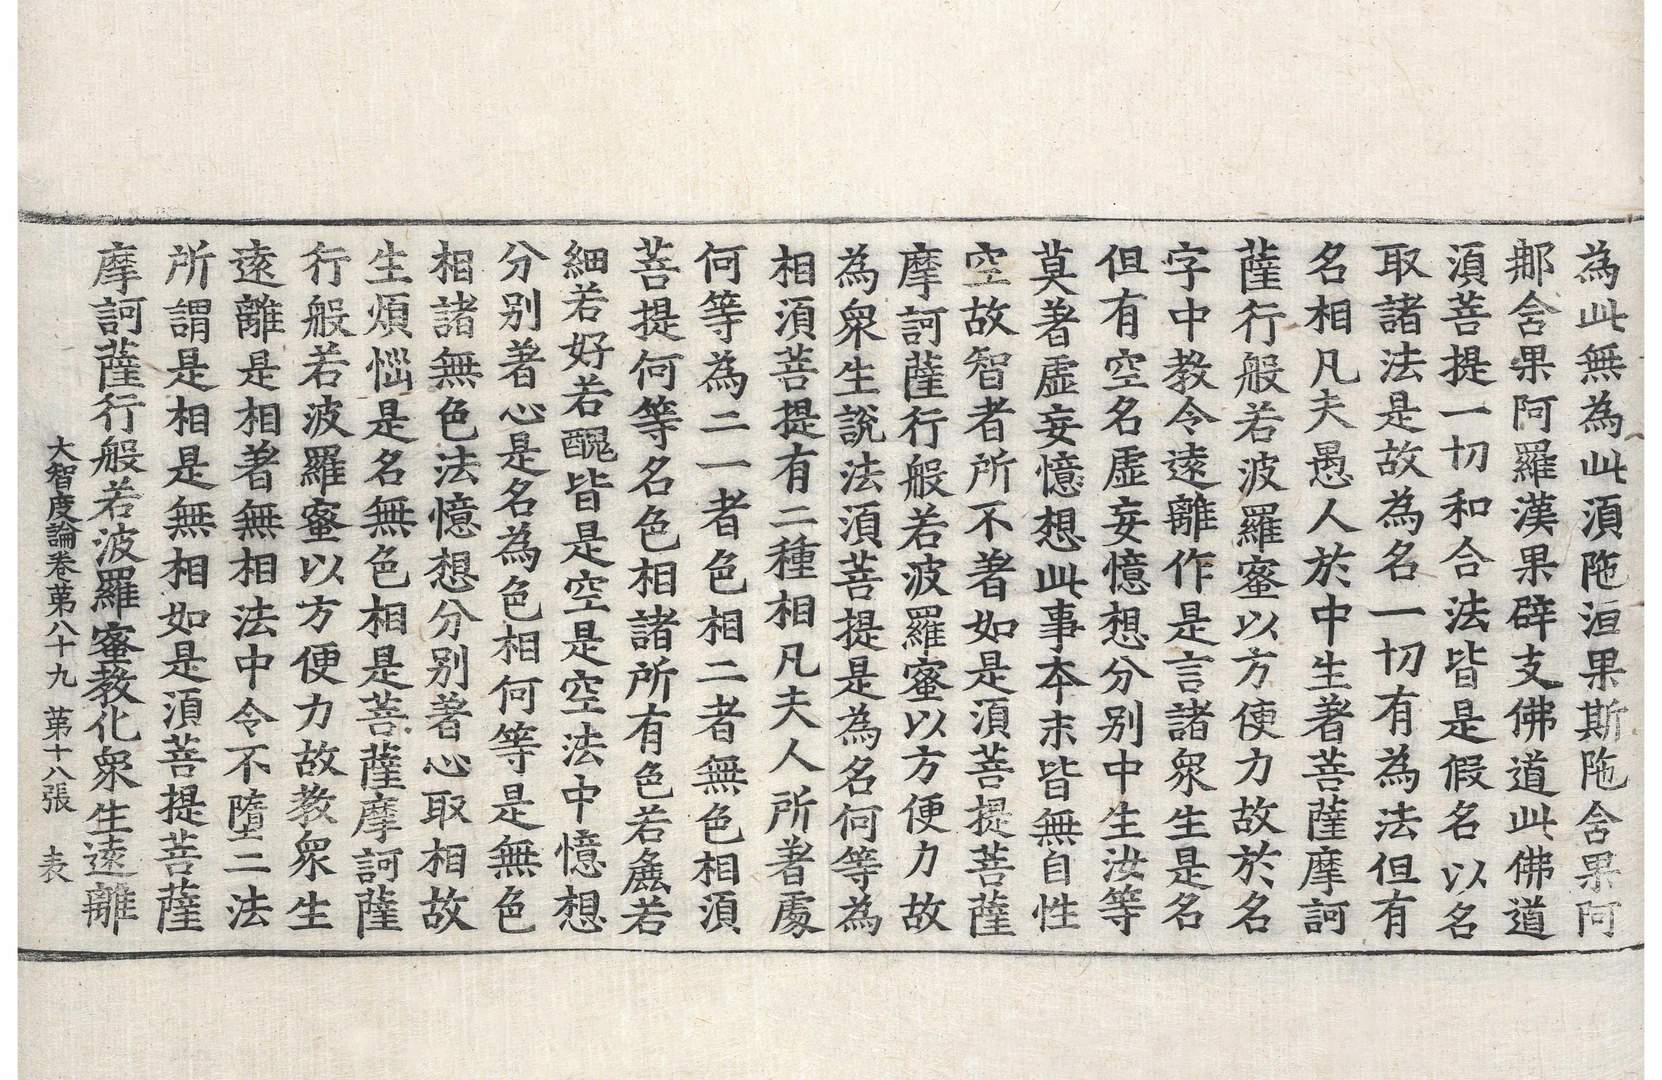 為此無為此湏陁洹果斯陁含果阿
那含果阿羅漢果辟支佛道此佛道
湏菩提一切和合法皆是假名以名
取諸法是故為名一切有為法但有
名相凡夫愚人於中生著菩薩摩訶
薩行般若波羅蜜以方便力故於名
字中教令遠離作是言諸衆生是名
但有空名虛妄憶想分別中生汝等
莫著虛妄憶想此事本末皆無自性
空故智者所不著如是湏菩提菩薩
摩訶薩行般若波羅蜜以方便力故
為衆生說法湏菩提是為名何等為
相湏菩提有二種相凡夫人所著處
何等為二一者色相二者無色相湏
菩提何等名色相諸所有色若麁若
細若好若醜皆是空是空法中憶想
分別著心是名為色相何等是無色
相諸無色法憶想分別著心取相故
生煩惱是名無色相是菩薩摩訶薩
行般若波羅蜜以方便力故教衆生
遠離是相著無相法中令不墮二法
所謂是相是無相如是湏菩提菩薩
摩訶薩行般若波羅蜜教化衆生遠離
大智度論卷第八十九 第十八張 表